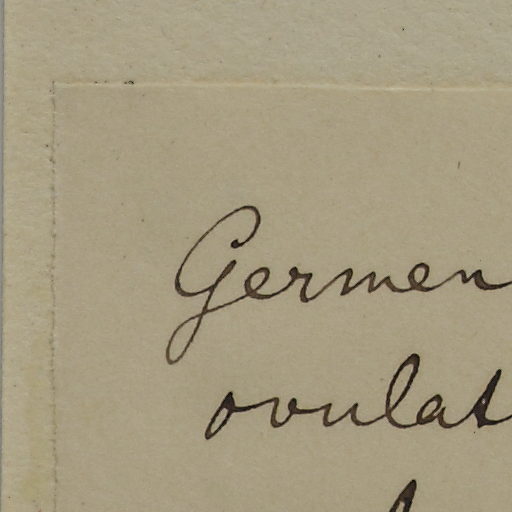 Germen
ovulat